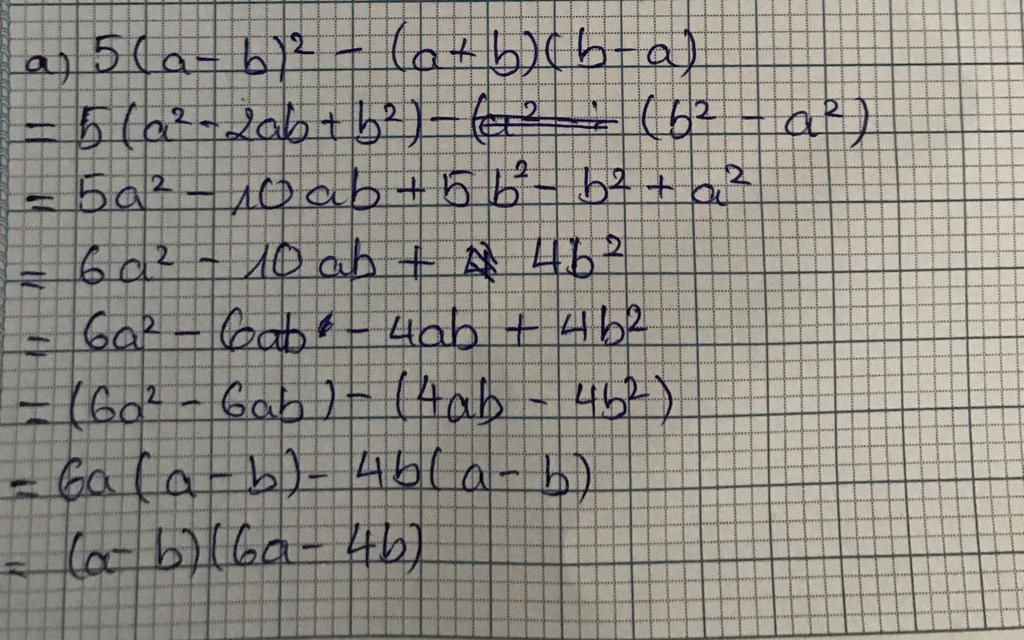 a) 5(a-b)² - (a+b)(b-a)
= 5(a² - 2ab + b²) - (b² - a²)
= 5a² - 10ab + 5b² - b² + a²
= 6a² - 10ab + 4b²
= 6a² - 6ab - 4ab + 4b²
= (6a² - 6ab) - (4ab - 4b²)
= 6a(a-b) - 4b(a-b)
= (a-b)(6a-4b)